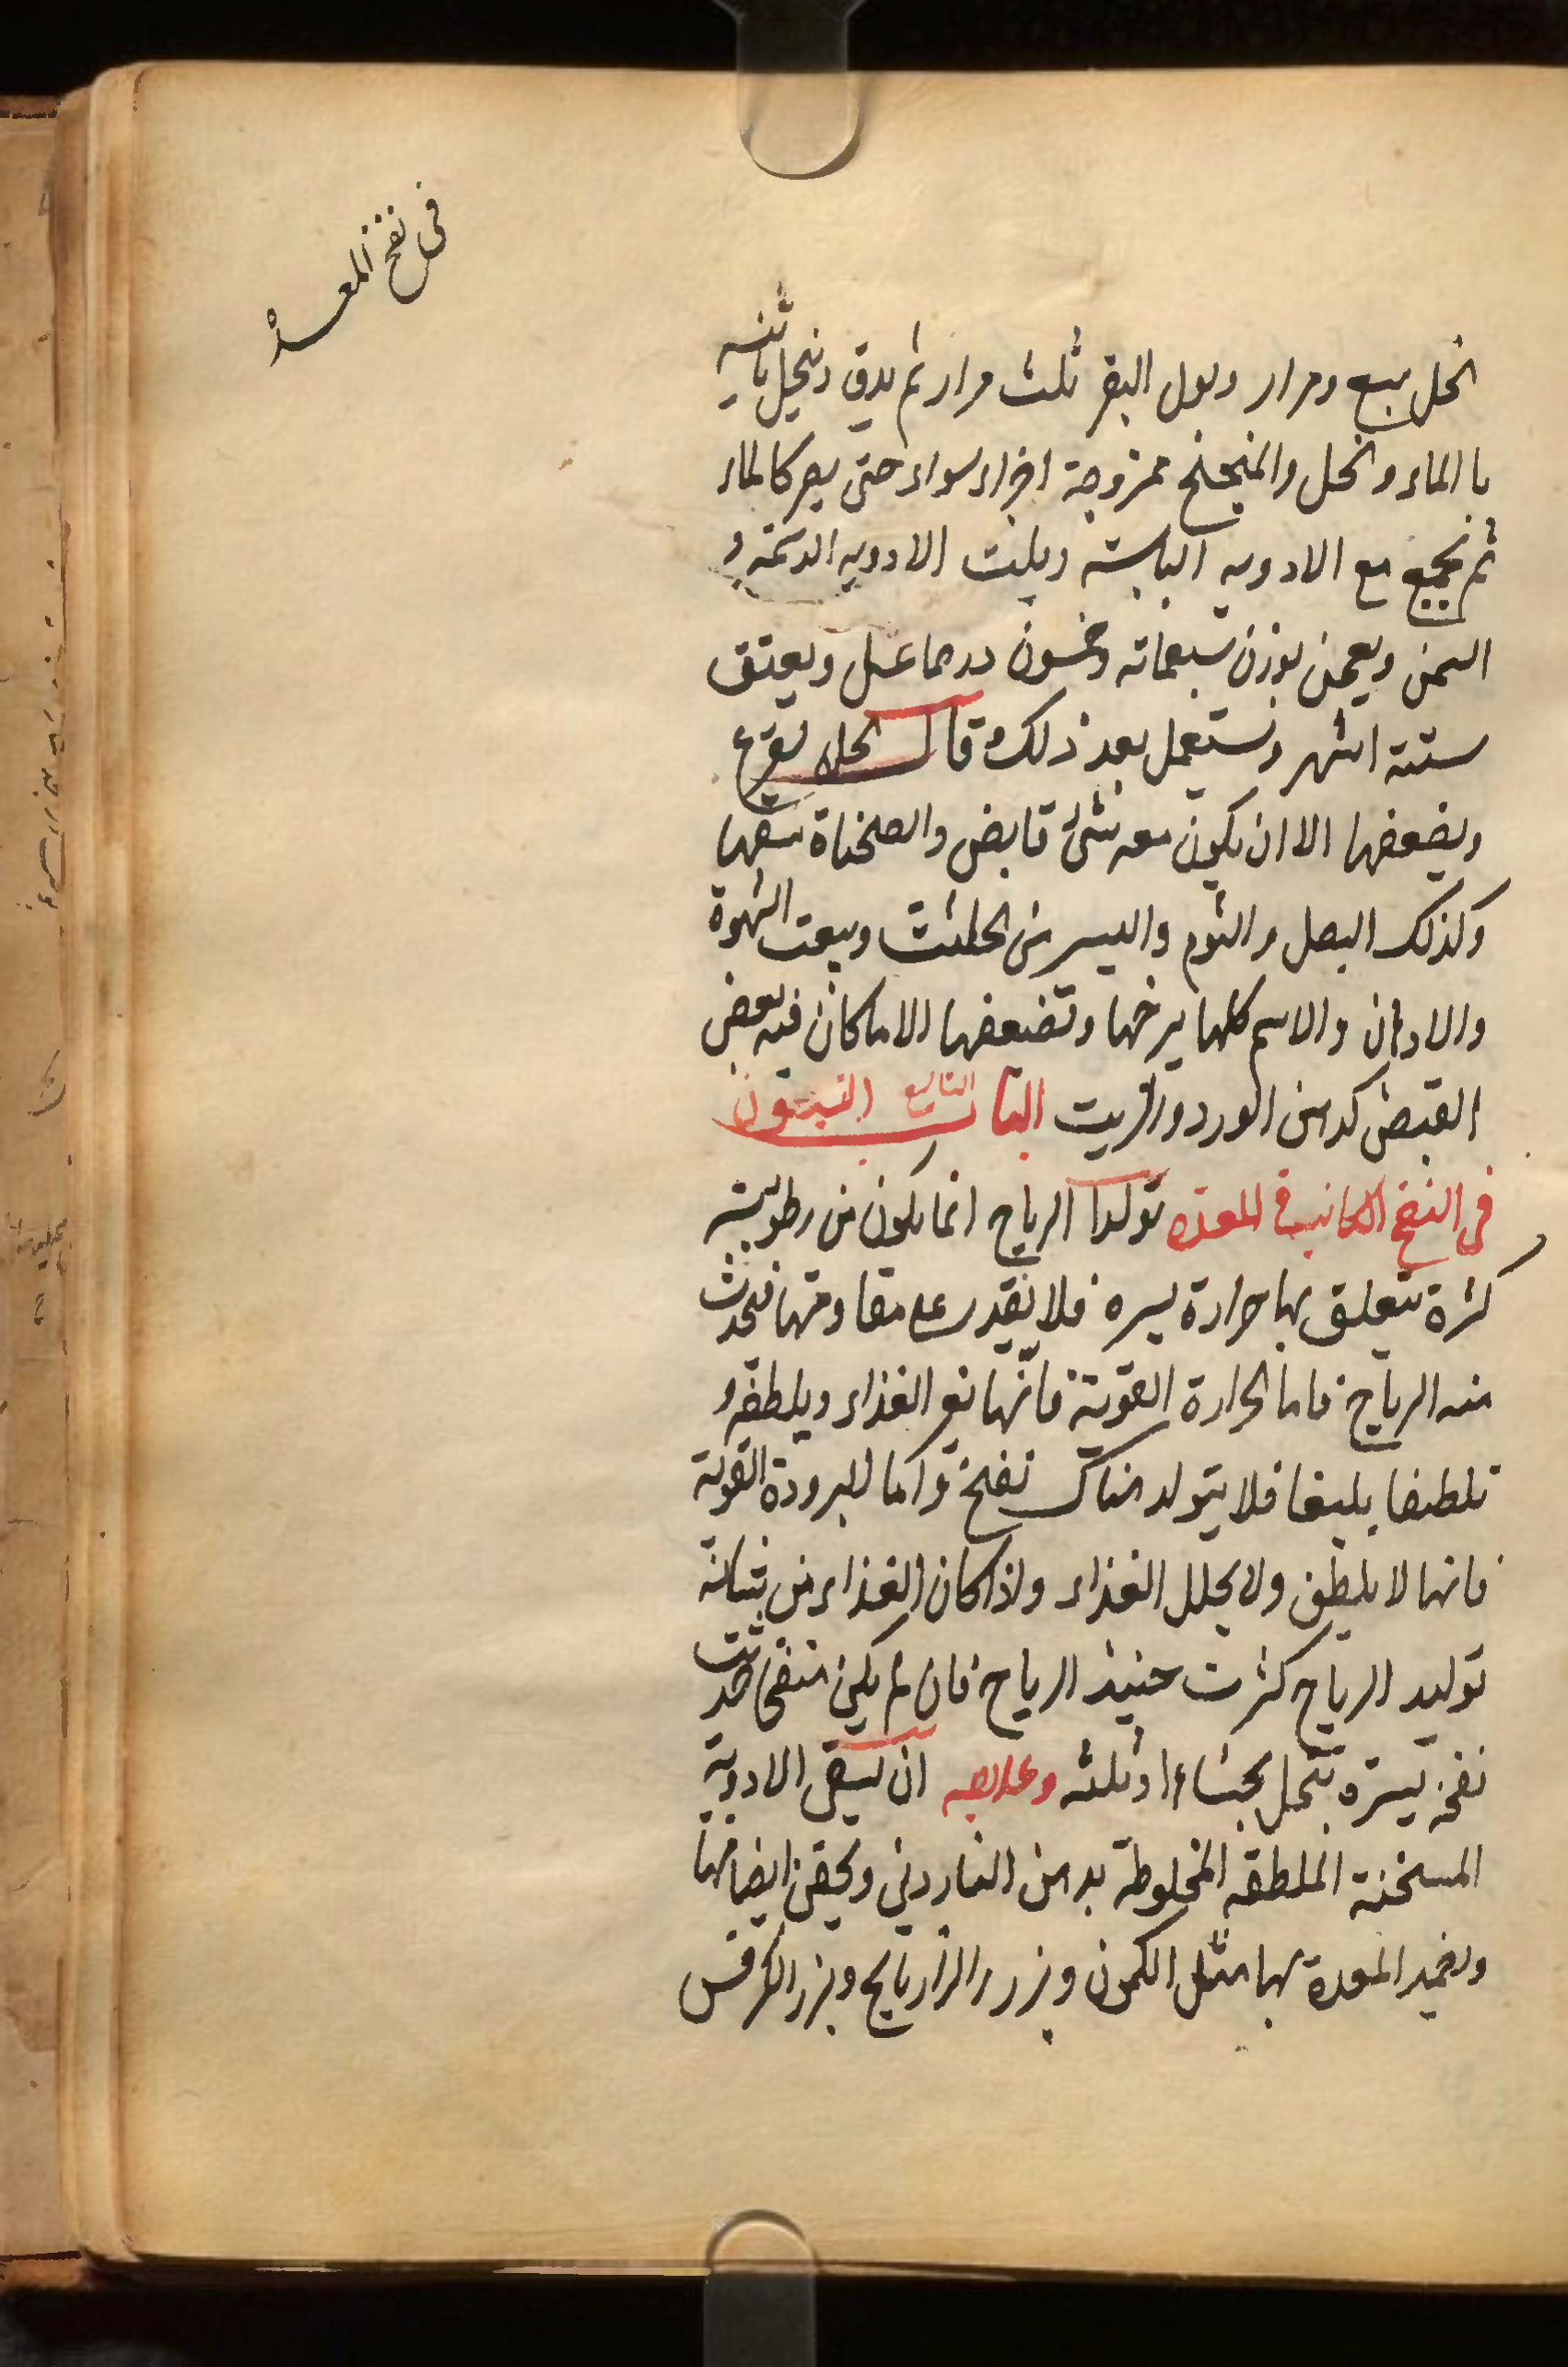 في نفخ المعدة
الخل سبع ومرار وبول البقر ثلث مرار ثم يدق وينخل ثانيه
با الماء والخل والمنجنح ممزوجة اجزاء سواء حتى يصير كالماء
ثم يجمع مع الادويه اليابسة ويلت الادويه الدسمة و
السمن ويعجن بوزن سبعمائه وخمسون درهما عسل ويعتق
ستة اشهر ويستعمل بعد ذلك قال الخل يقرع
ويضعفها الا ان يكون معه شئ قابض والصحناة تنقيها
وكذلك البصل والثوم واليسير من الحلتيت ويبعث الشهوة
والادهان والدسم كلها يرخيها وتضعفها الا ما كان فيه بعض
القبض كدهن الورد والزيت الباب التاسع والستون
في النفخ الكائنة في المعدة تولد الرياح انما يكون من رطوبة
كثيرة يتعلق بها حرارة يسيره فلا تقدر على مقاومتها فيحدث
منه الرياح فاما الحرارة القوية فانها الغذاء ويلطفه و
تلطيفا بليغا فلا يتولد هناك نفخ واما البرودة القوية
فانها لا يلطف ولا يحلل الغذاء واذا كان الغذاء من شانه
توليد الرياح كثرت حينئذ الرياح فان لم يكن منفخ حدثت
نفخة يسيرة تتحلل بجشاء او ثلثه وعلاجه ان يسقى الادوية
المسخنة الملطفة المخلوطة بدهن الناردين ويحقن ايضا منها
ويضمد المعدة بها مثل الكمون وبزر الرازيانج وبزر الكرفس